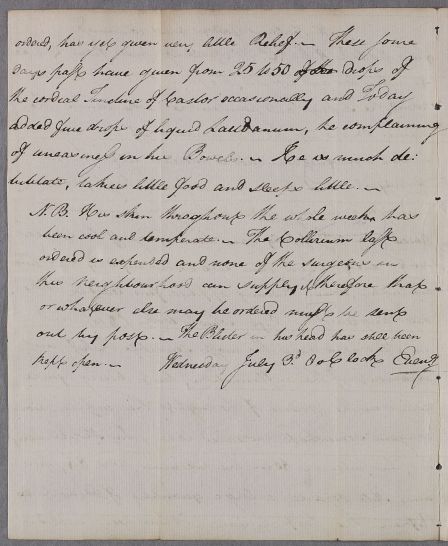 ordered, has yet given very little Relief. — These some
days past have given from 25 to 50 drops of
the cordial Tincture of Castor occasionally and To day
added five drops of liquid Laudanum, he complaining
of uneasiness in his Bowels. — He is much de:
bilitate, takes little food and sleeps little. —
N.B. His skin throughout the whole has
been cool and temperate. — The Collirium last
ordered is expended and none of the surgeons in
this neighbourhood can supply it therefore that
or whatever else may be ordered must be sent
out by post. — The Blister in his head has still been
kept open. — Wednesday July 3d 8 o Clock Eveng